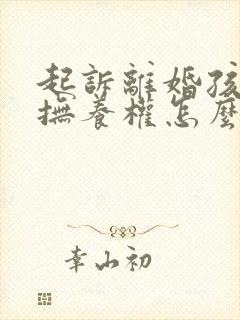 起訴離婚孩
撫養權怎麼
幸山初